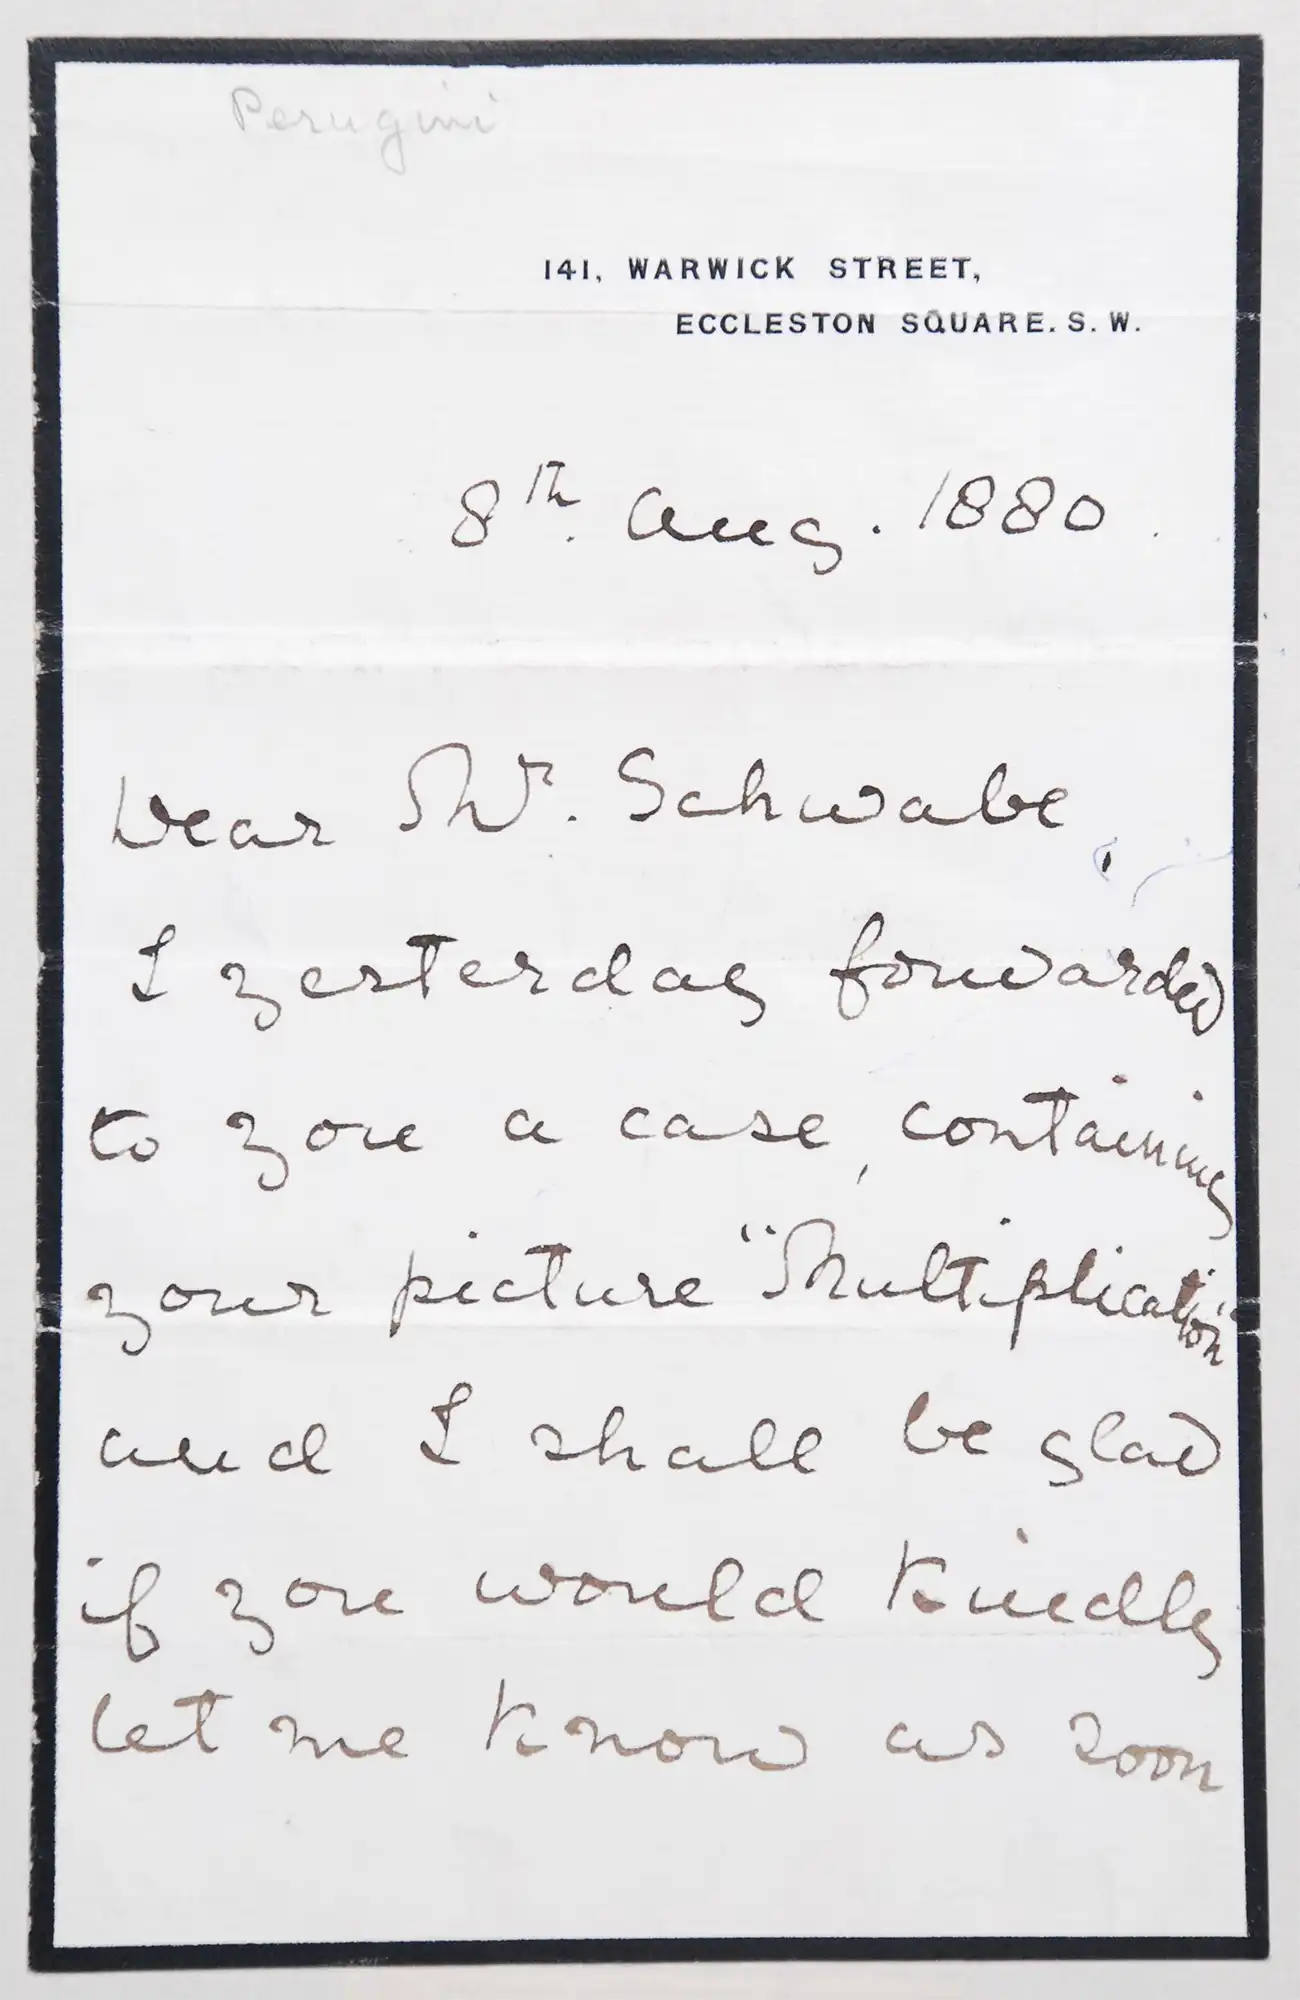 Perugini
141, WARWICK STREET,
ECCLESTON SQUARE. S. W.
8th. Aug. 1880.
Dear Mr. Schwabe,
I yesterday forwarded
to you a case, containing
your picture "Multiplication"
and I shall be glad
if you would kindly
let me know as soon